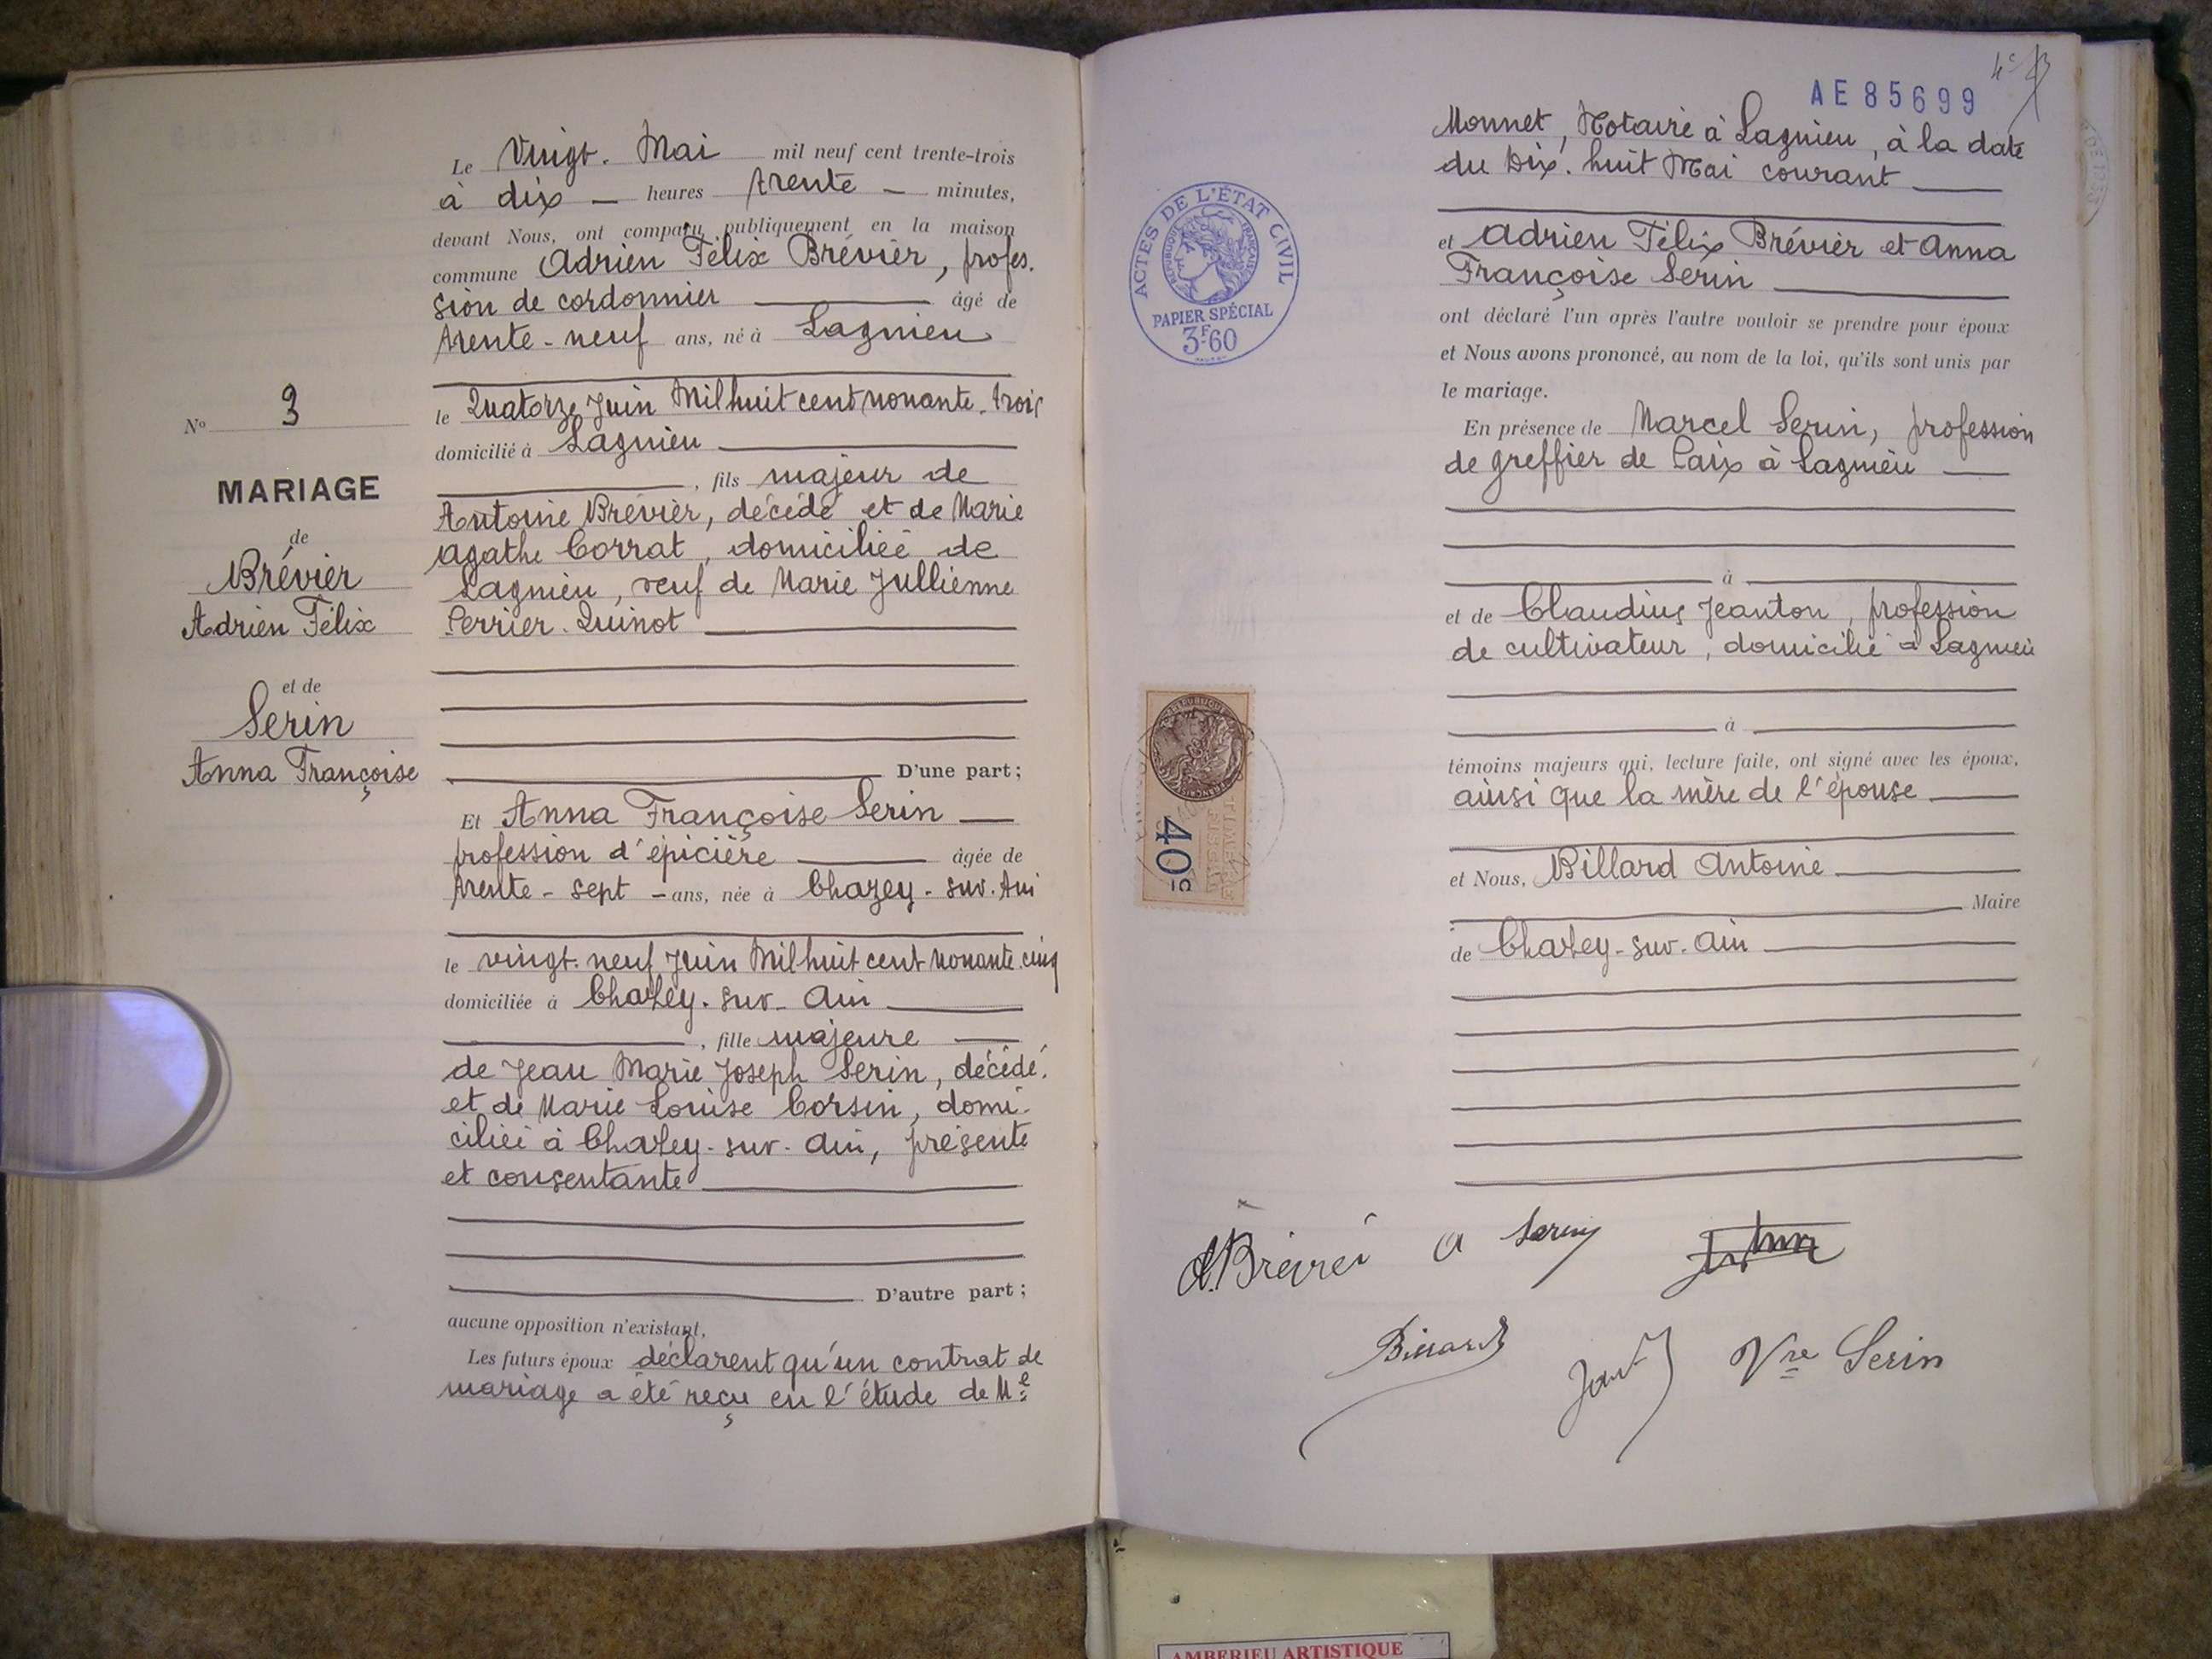 Le Vingt. Mai mil neuf cent trente-trois
à dix heures trente minutes,
devant Nous, ont comparu publiquement en la maison
commune Adrien Félix Brévier, profes.
sion de cordonnier âgé de
trente-neuf ans, né à Lagnieu
le Quatorze Juin Mil huit cent nonante-trois
domicilié à Lagnieu
, fils majeur de
Antoine Brévier, décédé et de Marie
Agathe Corrat, domiciliée de
Lagnieu, veuf de Marie Jullienne
Perrier-Quinot
D'une part;
Nº 3
MARIAGE
de
Brévier
Adrien Félix
et de
Serin
Anna Françoise
Et Anna Françoise Serin
profession d'épicière âgée de
trente-sept ans, née à Chazey-sur-Ain
le vingt-neuf Juin Mil huit cent nonante-cinq
domiciliée à Chazey-sur-Ain
, fille majeure
de Jean Marie Joseph Serin, décédé.
et de Marie Louise Corsin, domi-
ciliée à Chazey-sur-Ain, présente
et consentante
D'autre part;
aucune opposition n'existant,
Les futurs époux déclarent qu'un contrat de
mariage a été reçu en l'étude de Me
AE85699
Monnet, Notaire à Lagnieu, à la date
du Dix-huit Mai courant
et Adrien Félix Brévier et Anna
Françoise Serin
ont déclaré l'un après l'autre vouloir se prendre pour époux
et Nous avons prononcé, au nom de la loi, qu'ils sont unis par
le mariage.
En présence de Marcel Serin, profession
de greffier de Paix à Lagnieu
à
et de Claudius Jeanton, profession
de cultivateur, domicilié à Lagnieu
à
témoins majeurs qui, lecture faite, ont signé avec les époux,
ainsi que la mère de l'épouse
et Nous, Billard Antoine
Maire
de Chazey-sur-Ain
ACTES DE L'ÉTAT CIVIL
RÉPUBLIQUE FRANÇAISE
PAPIER SPÉCIAL
3F60
40c
TIMBRE
FISCAL
A. Brévier
A Serin
Billard
Vve Serin
AMBERIEU ARTISTIQUE